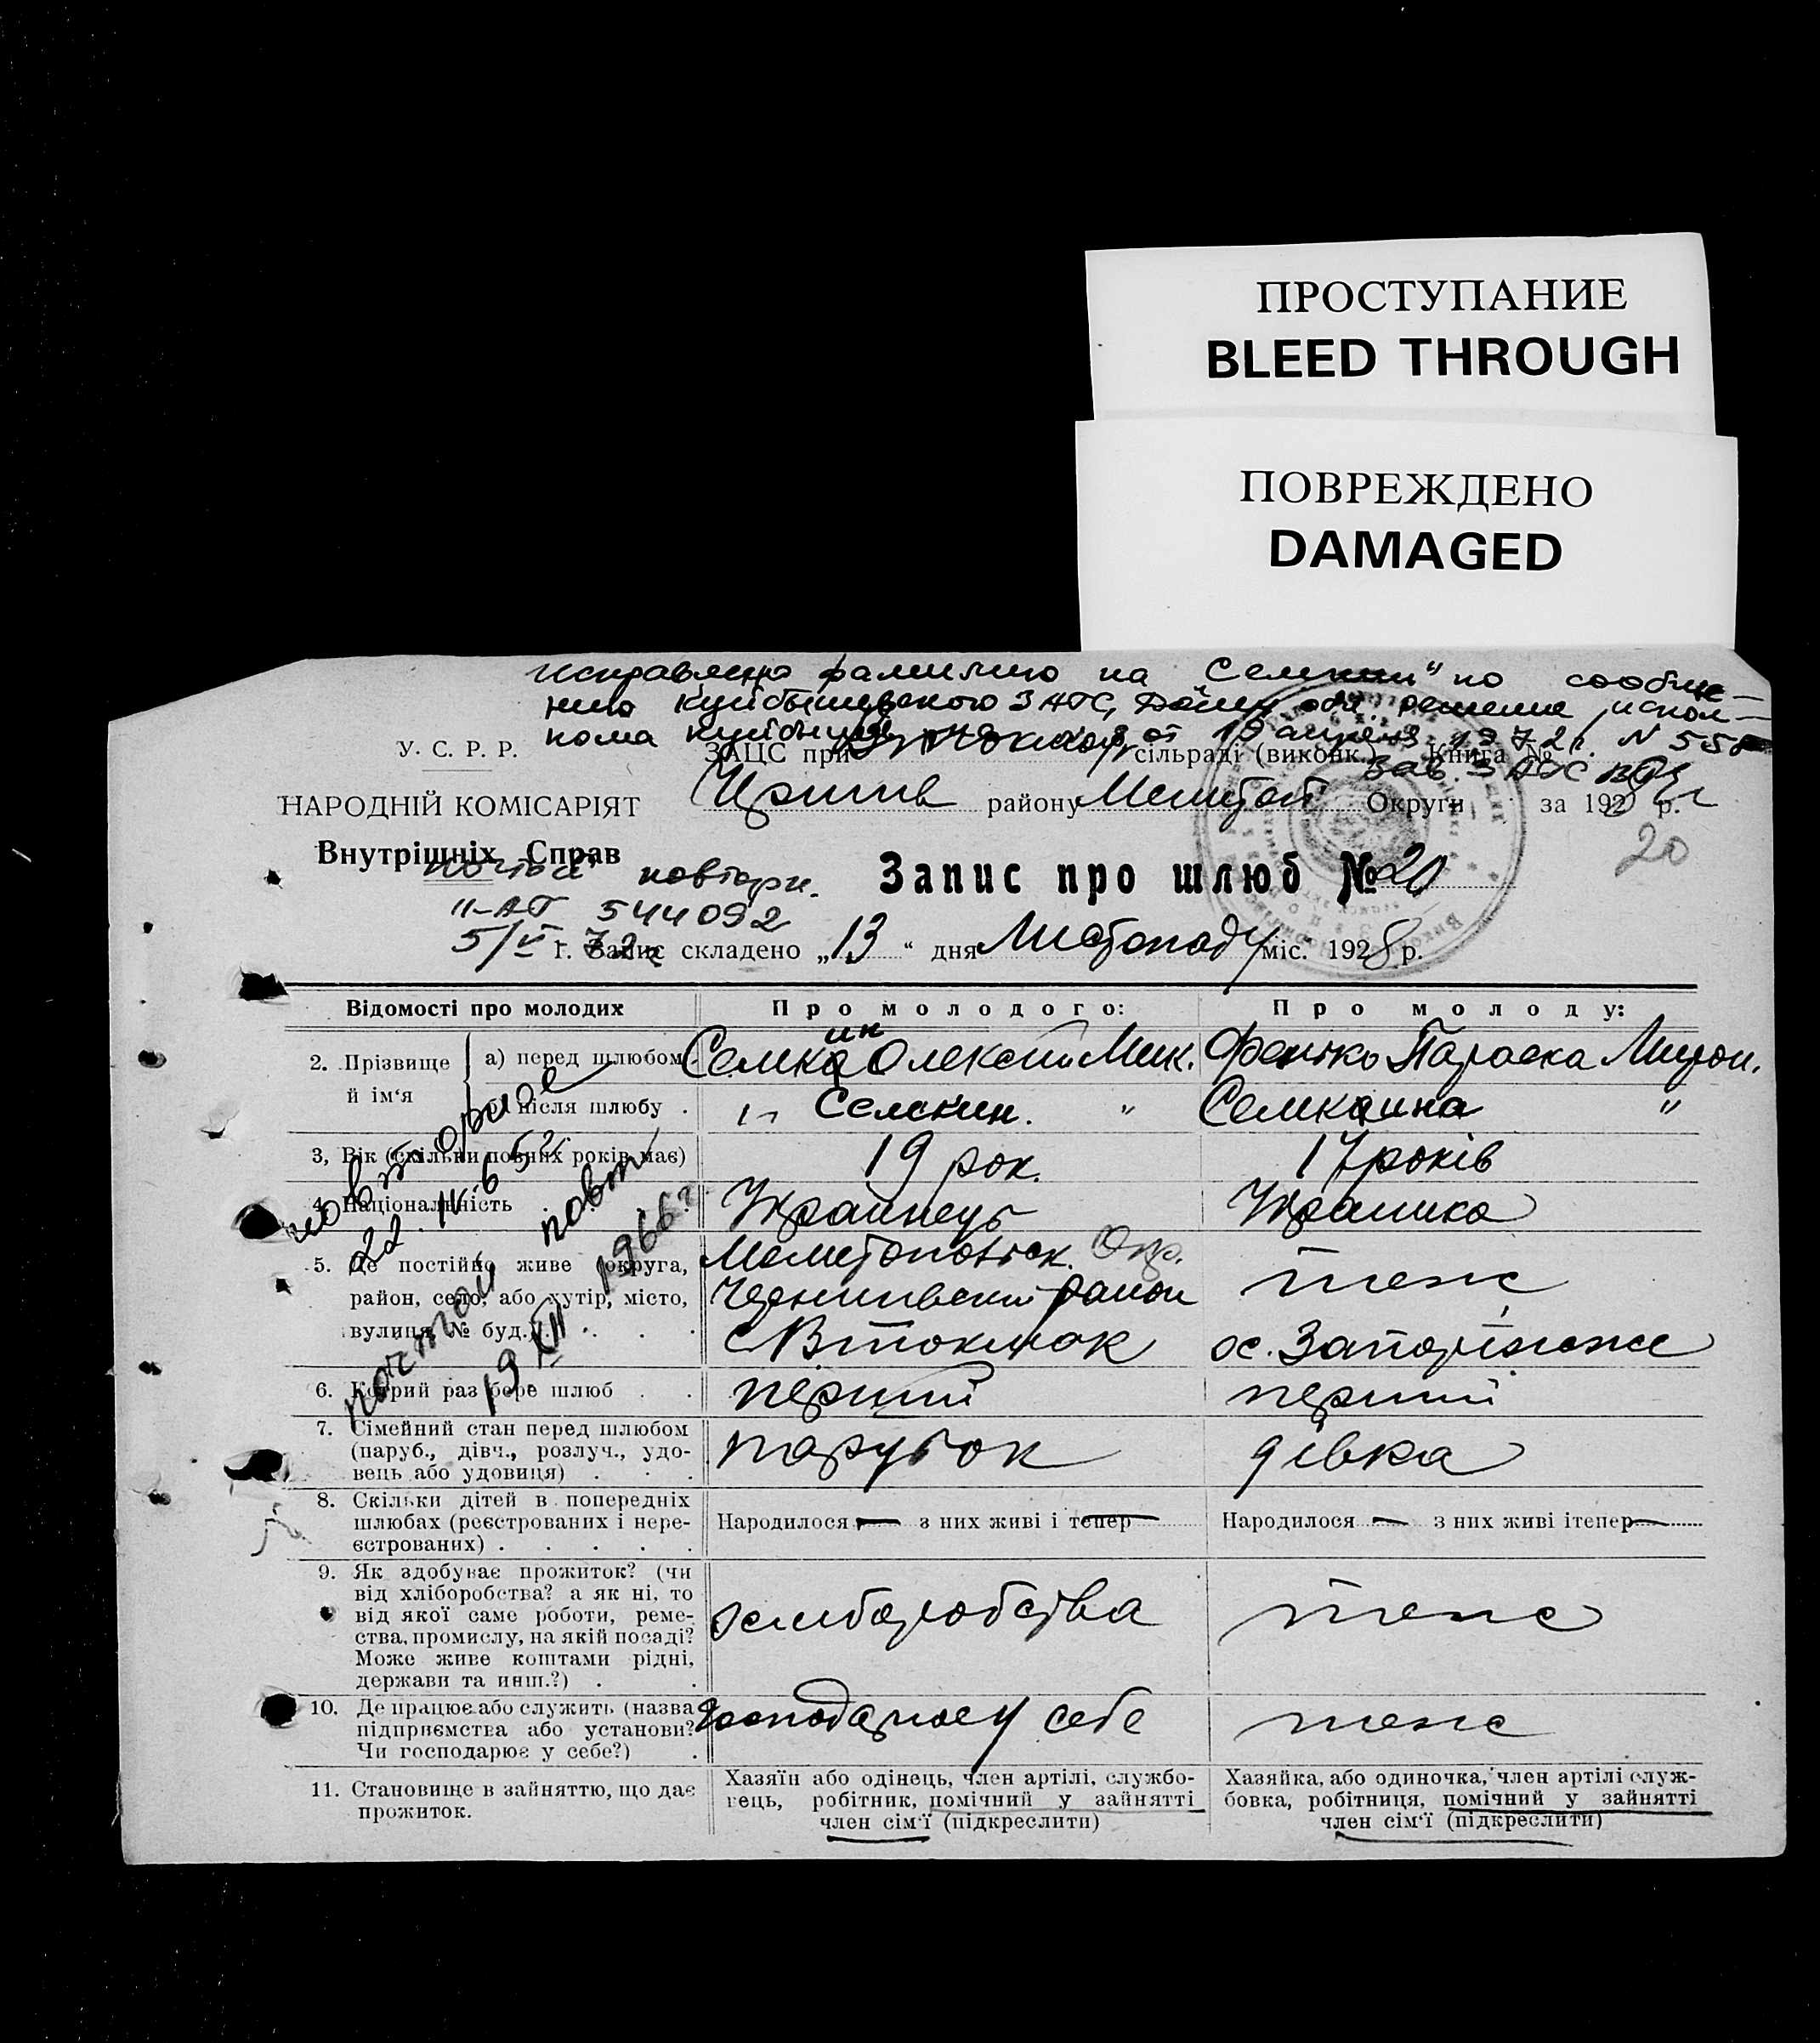 ПРОСТУПАНИЕ
BLEED THROUGH
ПОВРЕЖДЕНО
DAMAGED
Исправлено фамилию на "Семкин" по сообще-
нию Куйбышевского ЗАГС, обл. решение испол-
кома от 19 апреля 1972г. N 55
Зав. ЗАГС
У. С. Р. Р.
ЗАЦС при сільраді (виконк.) Книга №
НАРОДНІЙ КОМІСАРІЯТ
району Мелітоп Округи за 1928 р.
Внутрішніх Справ
20
повторн.
Запис про шлюб № 20
II-АП 544092
5/V 72г
1. Запис складено „13“ дня Листопаду міс. 1928 р.
Відомості про молодих
Про молодого:
Про молоду:
2. Прізвище й ім‘я
а) перед шлюбом
Семка Олексій Мик.
ин
Фенько Параска Мирон.
б) після шлюбу .
" Семкин. "
Семкина "
3, Вік (скільки повних років має)
19 рок.
17 років
4. Національність
Українець
Українка
5. Де постійно живе (округа,
район, село, або хутір, місто,
вулиця, № буд.)
Мелітопольск. Окр.
район
с Втокмак
тоже
х. Запоріжже
6. Котрий раз бере шлюб . .
перший
перший
7. Сімейний стан перед шлюбом
(паруб., дівч., розлуч., удо-
вець або удовиця) . . .
парубок
дівка
8. Скільки дітей в попередніх
шлюбах (реєстрованих і нере-
єстрованих) . . . . .
Народилося — з них живі і тепер —
Народилося — з них живі ітепер —
9. Як здобуває прожиток? (чи
від хліборобства? а як ні, то
від якої саме роботи, реме-
ства, промислу, на якій посаді?
Може живе коштами рідні,
держави та инш.?) . .
хліборобства
тоже
10. Де працює або служить (назва
підприємства або установи?
Чи господарює у себе?) .
господарює у себе
тоже
11. Становище в зайняттю, що дає
прожиток.
Хазяїн або одінець, член артілі, службо-
вець, робітник, помічний у зайнятті
член сім‘ї (підкреслити)
Хазяйка, або одиночка, член артілі служ-
бовка, робітниця, помічний у зайнятті
член сім‘ї (підкреслити)
повторное
22. IV. 65г
повт
19 XII 1966г